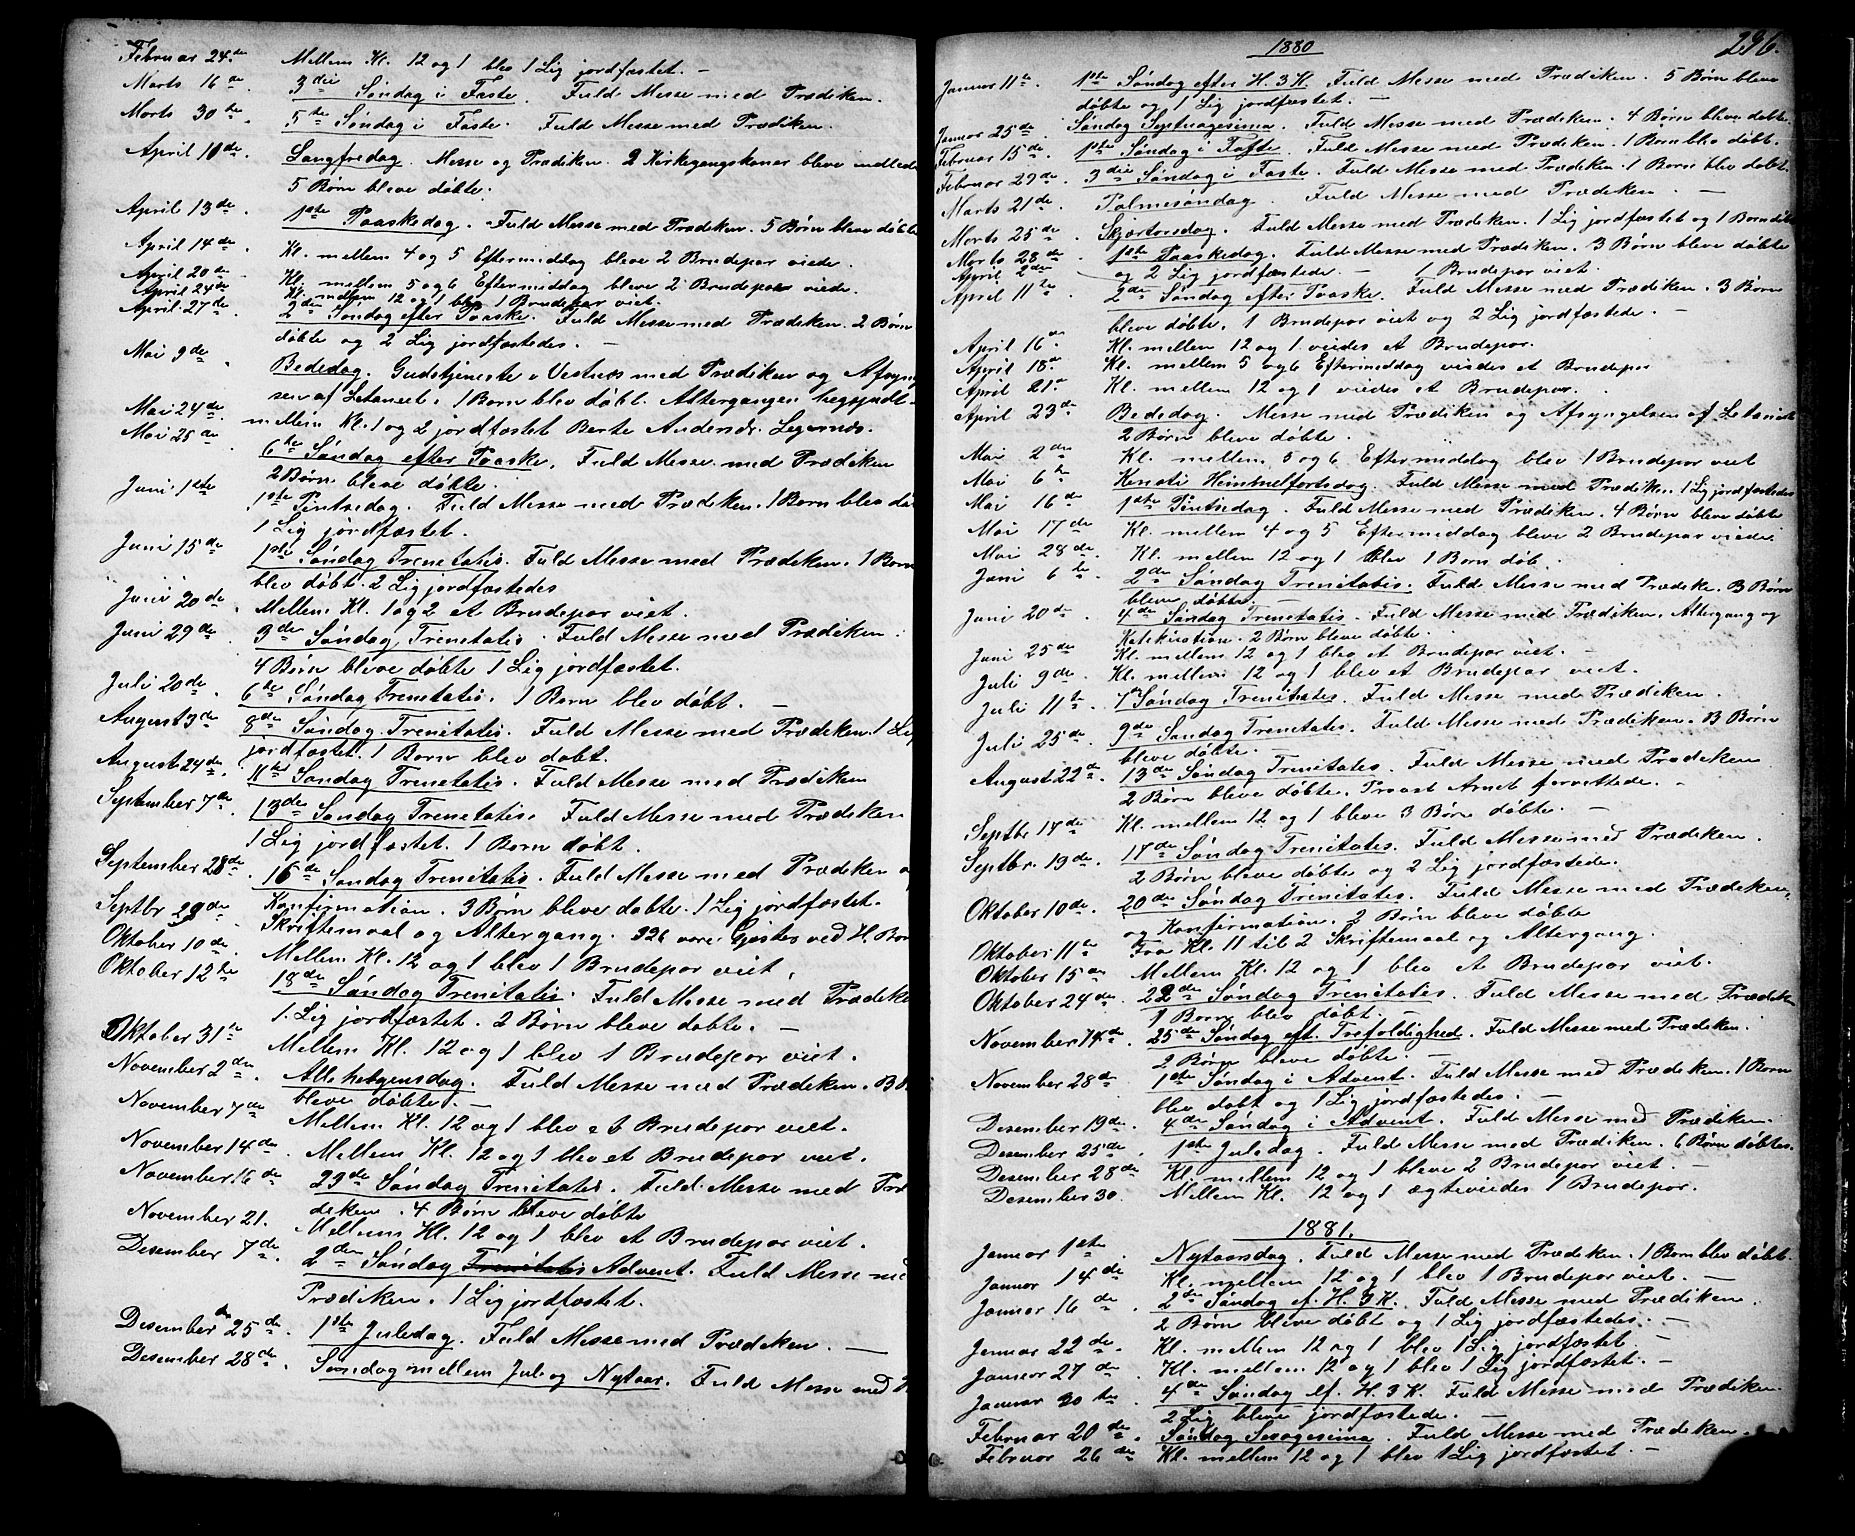 Februar 24de Mellem Kl. 12 og 1 blev 1 Lig jordfæstet. —
Marts 16de 3die Søndag i Faste. Fuld Messe med Prædiken.
Marts 30te 5te Søndag i Faste. Fuld Messe med Prædiken.
April 10de Langfredag. Messe og Prædiken. 2 Kirkegangskoner bleve indlede
5 Børn bleve døbte.
April 13de 1ste Paaskedag. Fuld Messe med Prædiken. 5 Børn bleve døbte
April 14de Kl. mellem 4 og 5 Eftermiddag bleve 2 Brudepar viede.
April 20de Kl. mellem 5 og 6 Eftermiddag bleve 2 Brudepar viede.
April 24de Kl. mellem 12 og 1 blev 1 Brudepar viet.
April 27de 2den Søndag efter Paaske. Fuld Messe med Prædiken. 2 Børn
døbte og 2 Lig jordfæstedes. —
Mai 9de Bededag. Gudstjeneste i Vestnes med Prædiken og Afsyng
sen af Letaniet. 1 Barn blev døbt. Altergangen
Mai 24de mellem Kl. 1 og 2 jordfæstet Berte Andersdr. Legernæs.
Mai 25de 6te Søndag efter Paaske. Fuld Messe med Prædiken
2 Børn bleve døbte.
Juni 1ste 1ste Pintsedag. Fuld Messe med Prædiken. 1 Barn blev dø
1 Lig jordfæstet.
Juni 15de 1ste Søndag Trenitatis. Fuld Messe med Prædiken. 1 Barn
blev døbt. 2 Lig jordfæstedes
Juni 20de Mellem Kl. 1 og 2 et Brudepar viet.
Juni 29de 3de Søndag Trenitatis. Fuld Messe med Prædiken.
4 Børn bleve døbte 1 Lig jordfæstet.
Juli 20de 6te Søndag Trenitatis. 1 Barn blev døbt. —
August 3de 8de Søndag Trenitatis. Fuld Messe med Prædiken. 1 Lig
jordfæstet. 1 Barn blev døbt.
August 24de 11te Søndag Trenitatis. Fuld Messe med Prædiken
September 7de 13de Søndag Trenitatis. Fuld Messe med Prædiken
1 Lig jordfæstet. 1 Barn døbt.
September 28de 16de Søndag Trenitatis. Fuld Messe med Prædiken o
Konfirmation. 3 Børn bleve døbte. 1 Lig jordfæstet.
Septbr 29de Skriftemaal og Altergang. 326 vare Gjester ved H. Bor
Oktober 10de Mellem Kl. 12 og 1 blev 1 Brudepar viet.
Oktober 12te 18de Søndag Trenitatis. Fuld Messe med Prædike
1 Lig jordfæstet. 2 Børn bleve døbte. —
Oktober 31te Mellem Kl. 12 og 1 blev 1 Brudepar viet.
November 2den Allehelgensdag. Fuld Messe med Prædiken. 3 B
bleve døbte. —
November 7de Mellem Kl. 12 og 1 blev et Brudepar viet.
November 14de Mellem Kl. 12 og 1 blev et Brudepar viet.
November 16de 23de Søndag Trenitatis. Fuld Messe med Præ
diken. 4 Børn bleve døbte
November 21. Mellem Kl. 12 og 1 blev et Brudepar viet.
Desember 7de 2den Søndag Trenitatis Advent. Fuld Messe me
Prædiken. 1 Lig jordfæstet.
Desember 25de 1ste Juledag. Fuld Messe med Prædiken. —
Desember 28de Søndag mellem Jul og Nytaar. Fuld Messe med P
296.
1880
Januar 11te 1ste Søndag efter H. 3 K. Fuld Messe med Prædiken. 5 Børn bleve
døbte og 1 Lig jordfæstet. —
Januar 25de Søndag Septuagesima. Fuld Messe med Prædiken. 4 Børn bleve døbte.
Februar 15de 1ste Søndag i Faste. Fuld Messe med Prædiken. 1 Barn blev døbt.
Februar 29de 3die Søndag i Faste. Fuld Messe med Prædiken. 1 Barn blev døbt.
Marts 21de Palmesøndag. Fuld Messe med Prædiken. —
Marts 25de Skjærtorsdag. Fuld Messe med Prædiken. 1 Lig jordfæstet og 1 Barn døbt
Marts 28de 1ste Paaskedag. Fuld Messe med Prædiken. 3 Børn bleve døbte
April 2den og 2 Lig jordfæstede. — 1 Brudepar viet.
April 11te 2den Søndag efter Paaske. Fuld Messe med Prædiken. 3 Børn
bleve døbte. 1 Brudepar viet og 2 Lig jordfæstede. —
April 16de Kl. mellem 12 og 1 viedes et Brudepar.
April 18de Kl. mellem 5 og 6 Eftermiddag viedes et Brudepar
April 21de Kl. mellem 12 og 1 viedes et Brudepar.
April 23de Bededag. Messe med Prædiken og Afsyngelsen af Letaniet
2 Børn bleve døbte.
Mai 2den Kl. mellem 5 og 6 Eftermiddag blev 1 Brudepar viet
Mai 6te Kristi Himmelfartsdag. Fuld Messe med Prædiken. 1 Lig jordfæstedes
Mai 16de 1ste Pintsedag. Fuld Messe med Prædiken. 4 Børn bleve døbte
Mai 17de Kl. mellem 4 og 5 Eftermiddag bleve 2 Brudepar viede.
Mai 28de Kl. mellem 12 og 1 blev 1 Barn døb.
Juni 6te 2den Søndag Trenitatis. Fuld Messe med Prædike. 3 Børn
bleve døbte. —
Juni 20de 4de Søndag Trenitatis. Fuld Messe med Prædiken. Altergang og
Katekisation. 2 Børn bleve døbte.
Juni 25de Kl. mellem 12 og 1 blev et Brudepar viet. —
Juli 9de Kl. mellem 12 og 1 blev et Brudepar viet.
Juli 11te 7de Søndag Trenitatis. Fuld Messe med Prædiken.
Juli 25de 9de Søndag Trenitatis. Fuld Messe med Prædiken. 3 Børn
bleve døbte.
August 22de 13de Søndag Trenitatis. Fuld Messe med Prædiken
2 Børn bleve døbte. Provst Arnet forrettede. —
Septbr 14de Kl. mellem 12 og 1 bleve 3 Børn døbte. —
Septbr. 19de 17de Søndag Trenitatis. Fuld Messe med Prædiken.
2 Børn bleve døbte og 2 Lig jordfæstede.
Oktober 10de 20de Søndag Trenitatis. Fuld Messe med Prædiken,
og Konfirmation. 2 Børn bleve døbte
Oktober 11te Fra Kl. 11 til 2 Skriftemaal og Altergang.
Oktober 15de Mellem Kl. 12 og 1 blev et Brudepar viet.
Oktober 24de 22de Søndag Trenitatis. Fuld Messe med Prædiken
1 Barn blev døbt. —
November 14de 25de Søndag eft. Trefoldighed. Fuld Messe med Prædiken.
2 Børn bleve døbte. —
November 28de 1ste Søndag i Advent. Fuld Messe med Prædiken. 1 Barn
blev døbt og 1 Lig jordfæstedes. —
Desember 19de 4de Søndag i Advent. Fuld Messe med Prædiken.
Desember 25de 1ste Juledag. Fuld Messe med Prædiken. 6 Børn døbtes.
Desember 28de Kl. mellem 12 og 1 bleve 2 Brudepar viet. —
Desember 30. Mellem Kl. 12 og 1 ægteviedes 1 Brudepar.
1881.
Januar 1ste Nytaarsdag. Fuld Messe med Prædiken. 1 Barn blev døbt.
Januar 14de Kl. mellem 12 og 1 blev 1 Brudepar viet. —
Januar 16de 2den Søndag ef. H. 3 K. Fuld Messe med Prædiken.
2 Børn bleve døbte og 1 Lig jordfæstedes. —
Januar 22de Kl. mellem 12 og 1 blev 1 Lig jordfæstet —
Januar 27de Kl. mellem 12 og 1 blev 1 Lig jordfæstet. —
Januar 30te 4de Søndag ef. H. 3 K. Fuld Messe med Prædiken.
2 Lig bleve jordfæstede. —
Februar 20de Søndag Sexagesima. Fuld Messe med Prædiken.
Februar 26de Kl. mellem 12 og 1 blev 1 Lig jordfæstet. —